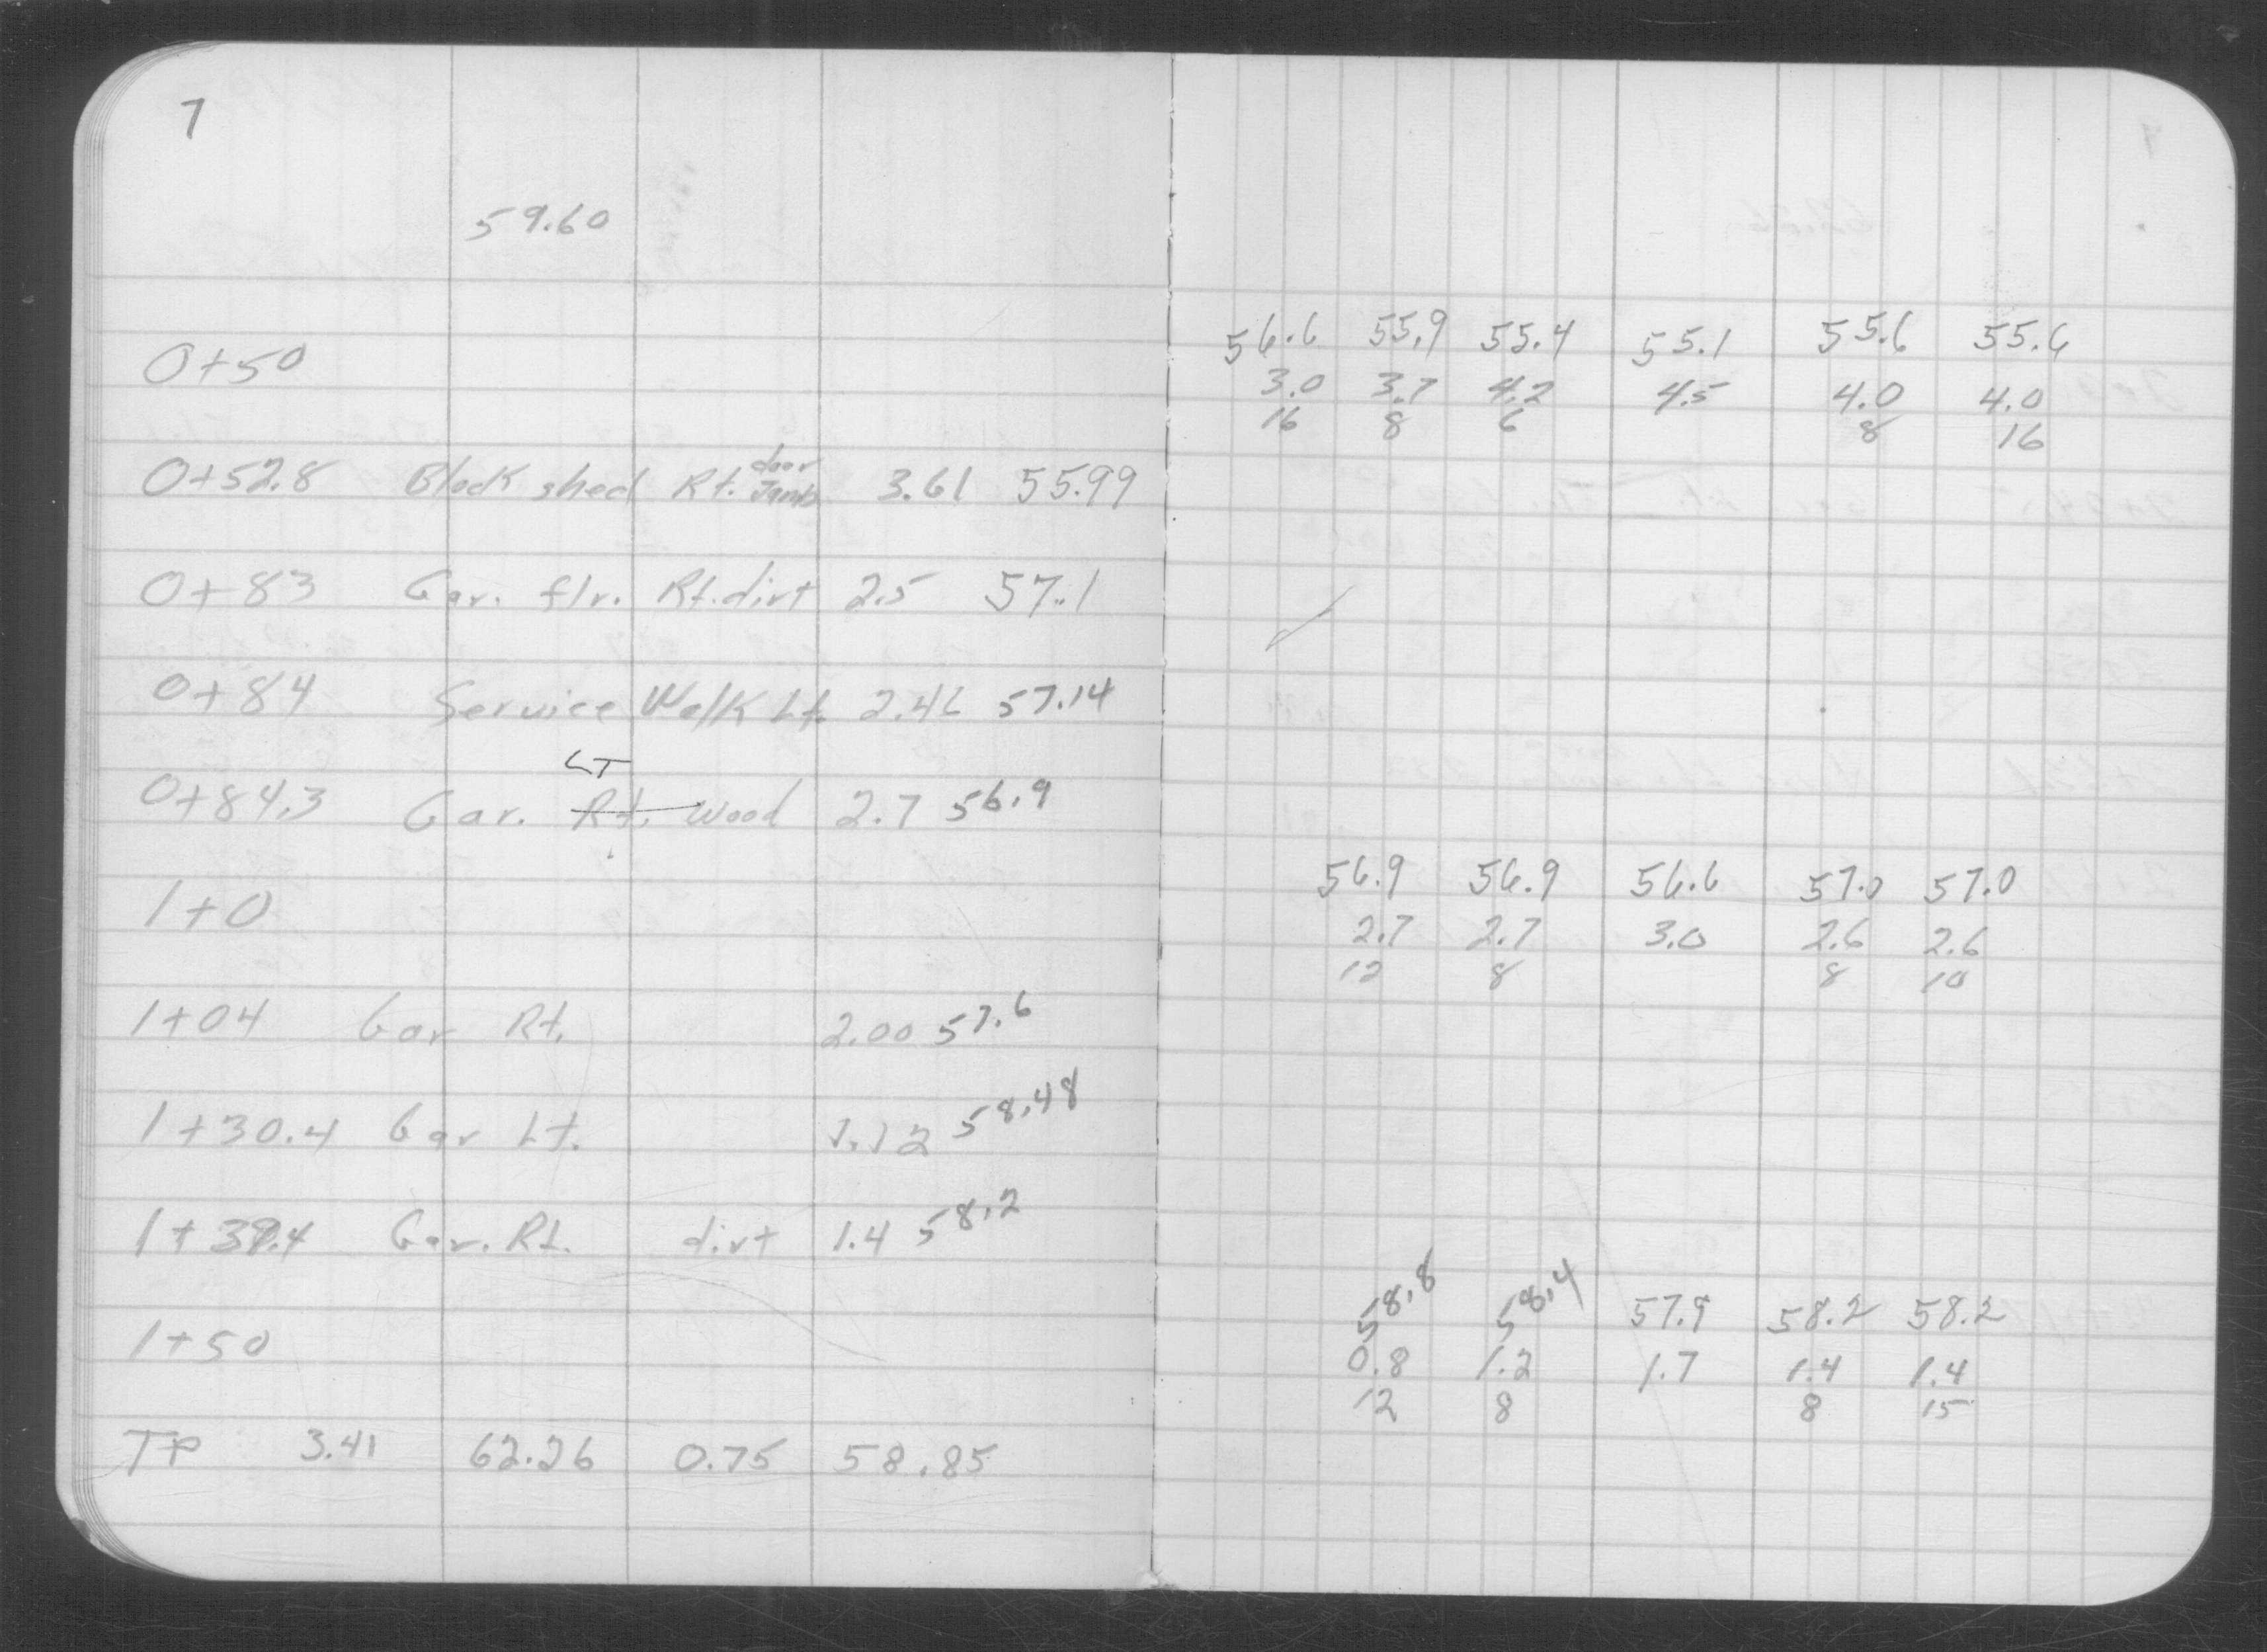 7
59.60
56.6 55.9 55.4 55.1 55.6 55.6
0+50
3.0 3.7 4.2 4.5 4.0 4.0
16 8 6 8 16
door
0+52.8 Block shed Rt. Jamb 3.61 55.99
0+83 Gar. flr. Rt. dirt 2.5 57.1
0+84 Service Walk Lt. 2.46 57.14
LT
0+84.3 Gar. Rt. Wood 2.7 56.9
56.9 56.9 56.6 57.0 57.0
1+0
2.7 2.7 3.0 2.6 2.6
12 8 8 10
1+04 Gar Rt. 2.00 57.6
1+30.4 Gar Lt. 1.12 58.48
1+39.4 Gar. Rt. dirt 1.4 58.2
58.8 58.4 57.9 58.2 58.2
1+50
0.8 1.2 1.7 1.4 1.4
12 8 8 15
TP 3.41 62.26 0.75 58.85